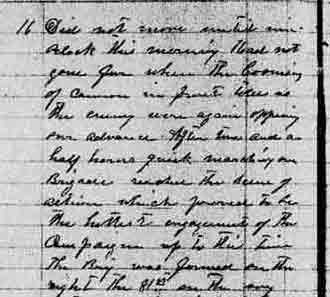 16 Did not move until nin
oclock this morning Had not
gone far where the booming
of cannon in front told us
the enemy were again opposing
our advance After two and a
half hours quick marching our
Brigade reached the scene of
action which proved to be
the hottest engagement of the
Campaign up to this time
The Brig was formed on the
right the 81st on the